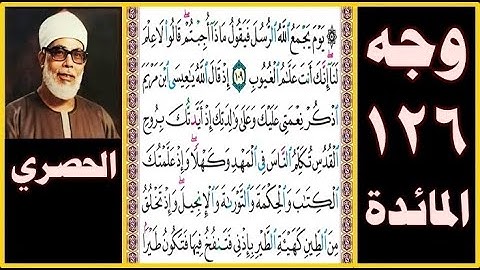 وجه
١٢٦
المائدة
۞ يَوْمَ يَجْمَعُ ٱللَّهُ ٱلرُّسُلَ فَيَقُولُ مَاذَآ أُجِبْتُمْ قَالُوا۟ لَا عِلْمَ
لَنَآ إِنَّكَ أَنتَ عَلَّٰمُ ٱلْغُيُوبِ ١٠٩ إِذْ قَالَ ٱللَّهُ يَٰعِيسَى ٱبْنَ مَرْيَمَ
ٱذْكُرْ نِعْمَتِى عَلَيْكَ وَعَلَىٰ وَٰلِدَتِكَ إِذْ أَيَّدتُّكَ بِرُوحِ
ٱلْقُدُسِ تُكَلِّمُ ٱلنَّاسَ فِى ٱلْمَهْدِ وَكَهْلًا وَإِذْ عَلَّمْتُكَ
ٱلْكِتَٰبَ وَٱلْحِكْمَةَ وَٱلتَّوْرَىٰةَ وَٱلْإِنجِيلَ وَإِذْ تَخْلُقُ
مِنَ ٱلطِّينِ كَهَيْـَٔةِ ٱلطَّيْرِ بِإِذْنِى فَتَنفُخُ فِيهَا فَتَكُونُ طَيْرًۢا
الحصري